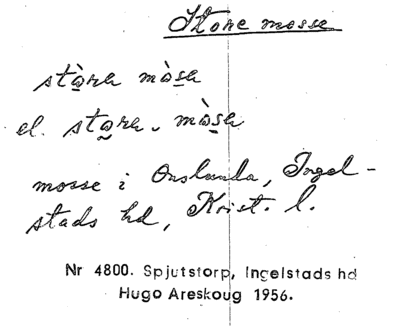 Store mosse
stàra mòsa
el. stara, mòsa
mosse i Onslunda, Ingel-
stads hd, Krist. l.
Nr 4800. Spjutstorp, Ingelstads hd
Hugo Areskoug 1956.